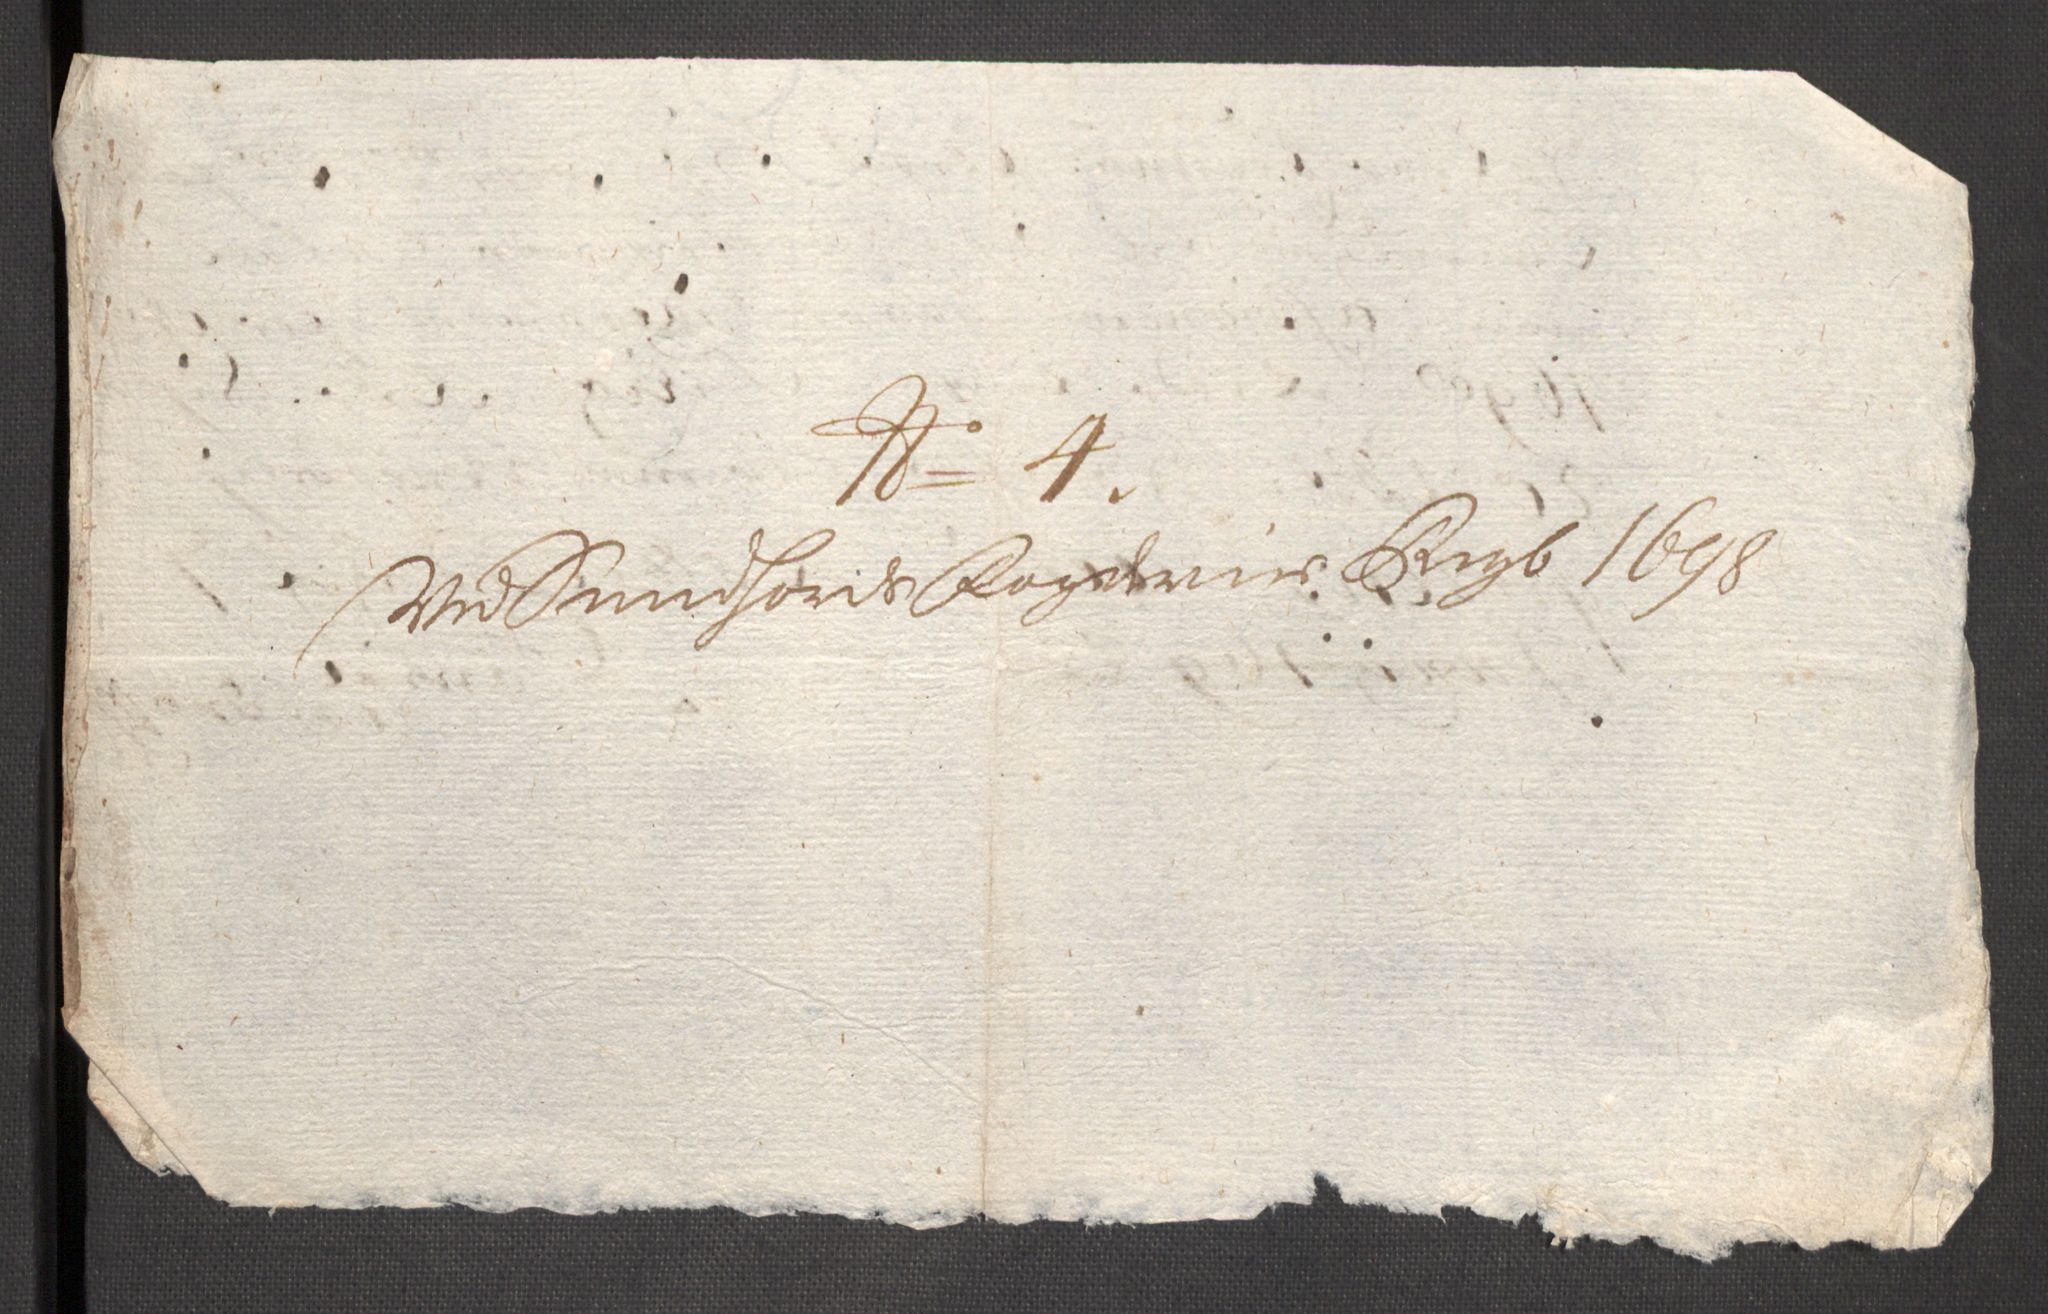 No 4.
Ved Sundhords Fogderies Regb 1698